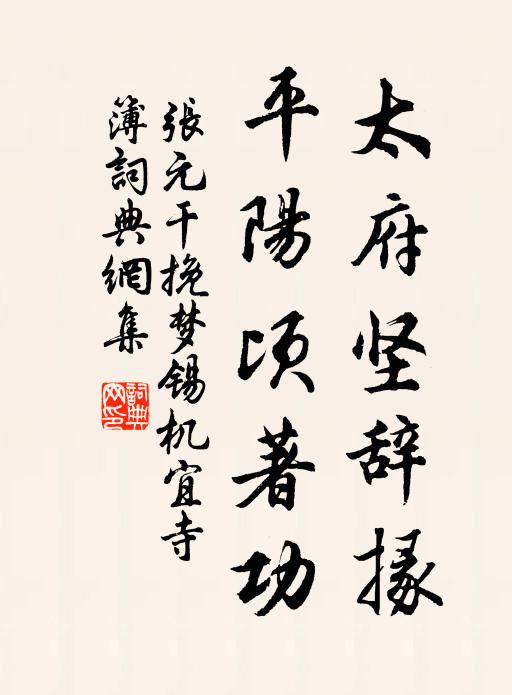 太府坚辞掾
平陽顷著功
張元干挽梦锡机宜寺
簿詞典網集
詞典网印